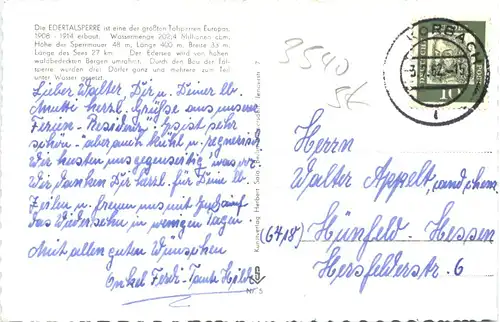 Die EDERTALSPERRE ist eine der größten Talsperren Europas.
1908 - 1914 erbaut. Wassermenge 202,4 Millionen cbm.
Höhe der Sperrmauer 48 m, Länge 400 m, Breite 33 m.
Länge des Sees 27 km. Der Edersee wird von hohen
waldbedeckten Bergen umrahmt. Durch den Bau der Tal-
sperre wurden drei Dörfer ganz und mehrere zum Teil
unter Wasser gesetzt.
Lieber Walter, Dir u. Deiner lb.
Mutti herzl. Grüße aus unserer
Ferien-Residenz. Es ist sehr
schön - aber auch kühl u. regnerisch
Wir
Wir danken Dir herzl. für Deine lb.
Zeilen u. freuen uns mit auf
das Wiedersehn in wenigen Tagen.
Mit allen guten Wünschen
Onkel Ferdi - Tante Hilde
Nr. 5
3540
KORBACH
10
Herrn
Walter Appelt, cand. chem.
(6418) Hünfeld - Hessen
Hersfelderstr. 6